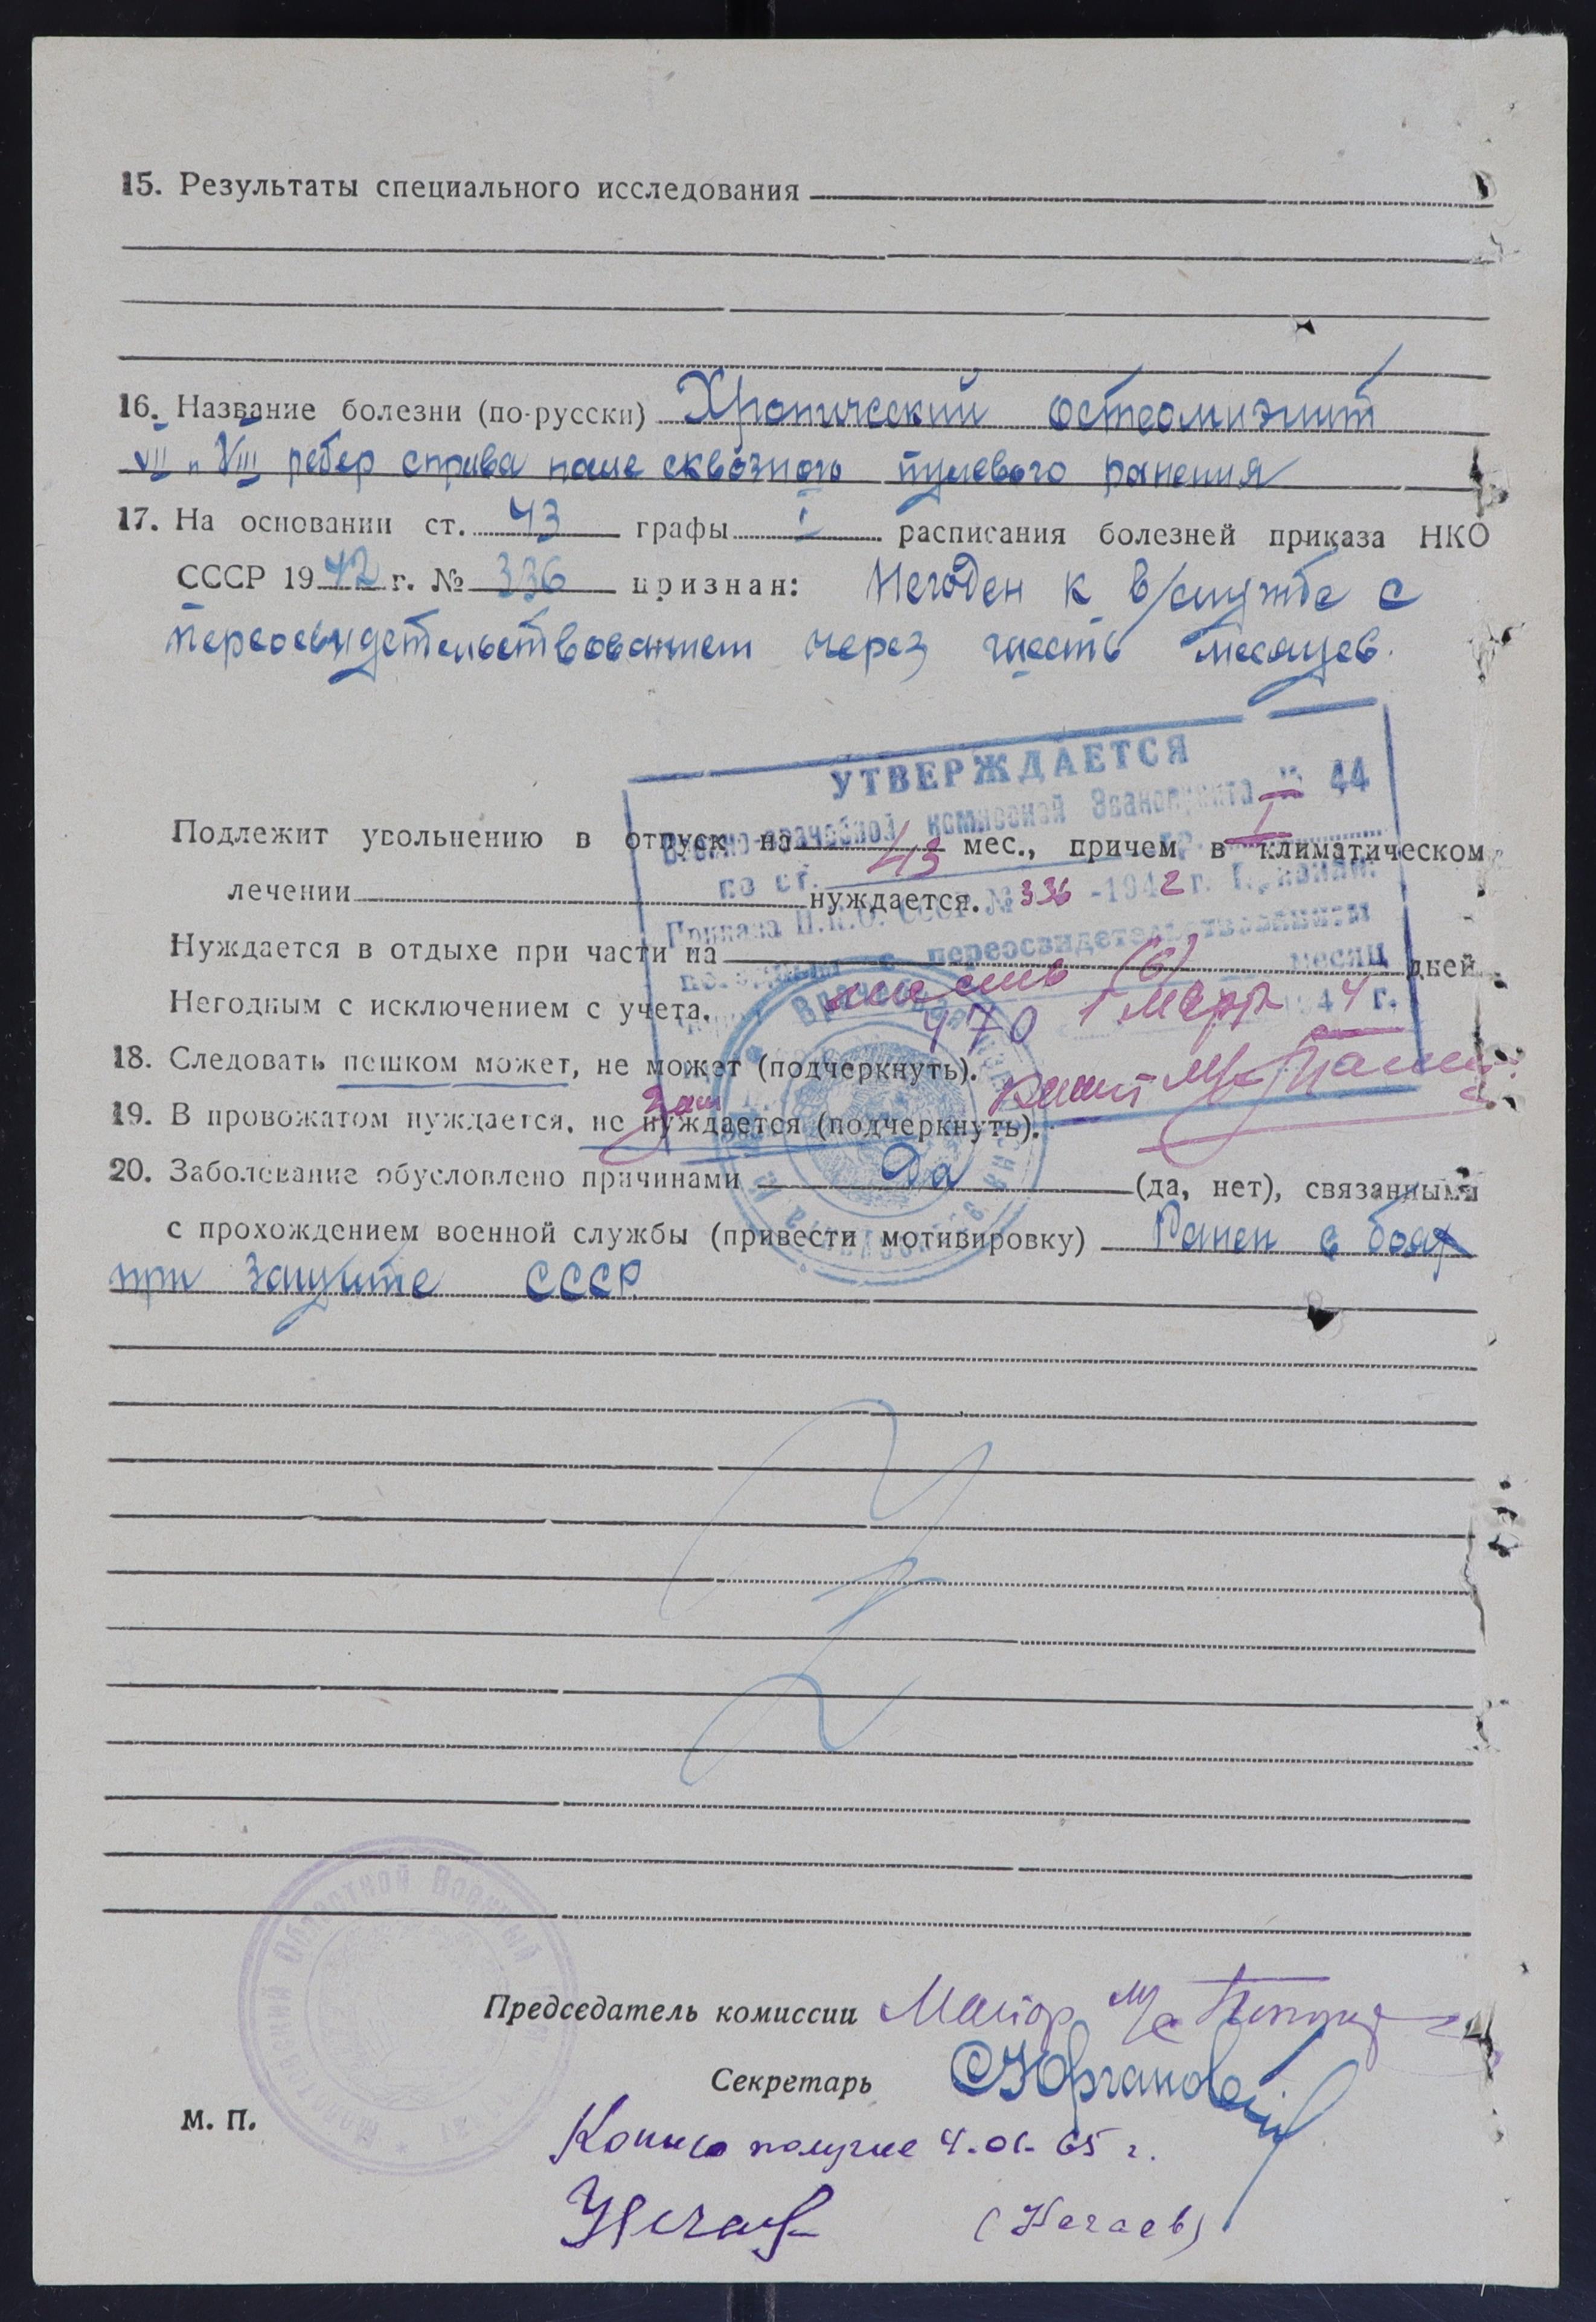 15. Результаты специального исследования
16. Название болезни (по-русски) Хронический остеомиэлит
VII и VIII ребер справа после сквозного пулевого ранения
17. На основании ст. 43 графы I расписания болезней приказа НКО
СССР 1942 г. № 336 признан: Негоден к в/службе с
переосвидетельствованием через шесть месяцев.
УТВЕРЖДАЕТСЯ
Военно-врачебной комиссией Эвакопункта № 44
Подлежит увольнению в отпуск на мес., причем в климатическом
по ст. 43 гр. I
лечении нуждается.
Приказа Н.К.О. СССР № 336 -1942 г. Признан:
Нуждается в отдыхе при части на дней
негодным с переосвидетельствованием
шесть (6) месяц
Негодным с исключением с учета.
470 1 марта 1944 г.
18. Следовать пешком может, не может (подчеркнуть).
19. В провожатом нуждается, не нуждается (подчеркнуть).
20. Заболевание обусловлено причинами Да (да, нет), связанными
с прохождением военной службы (привести мотивировку) Ранен в боях
при защите СССР
Областной Военный
Председатель комиссии Майор м/с
Секретарь
М. П.
Копию получил 4-01-65 г.
Нечаев
(Нечаев)